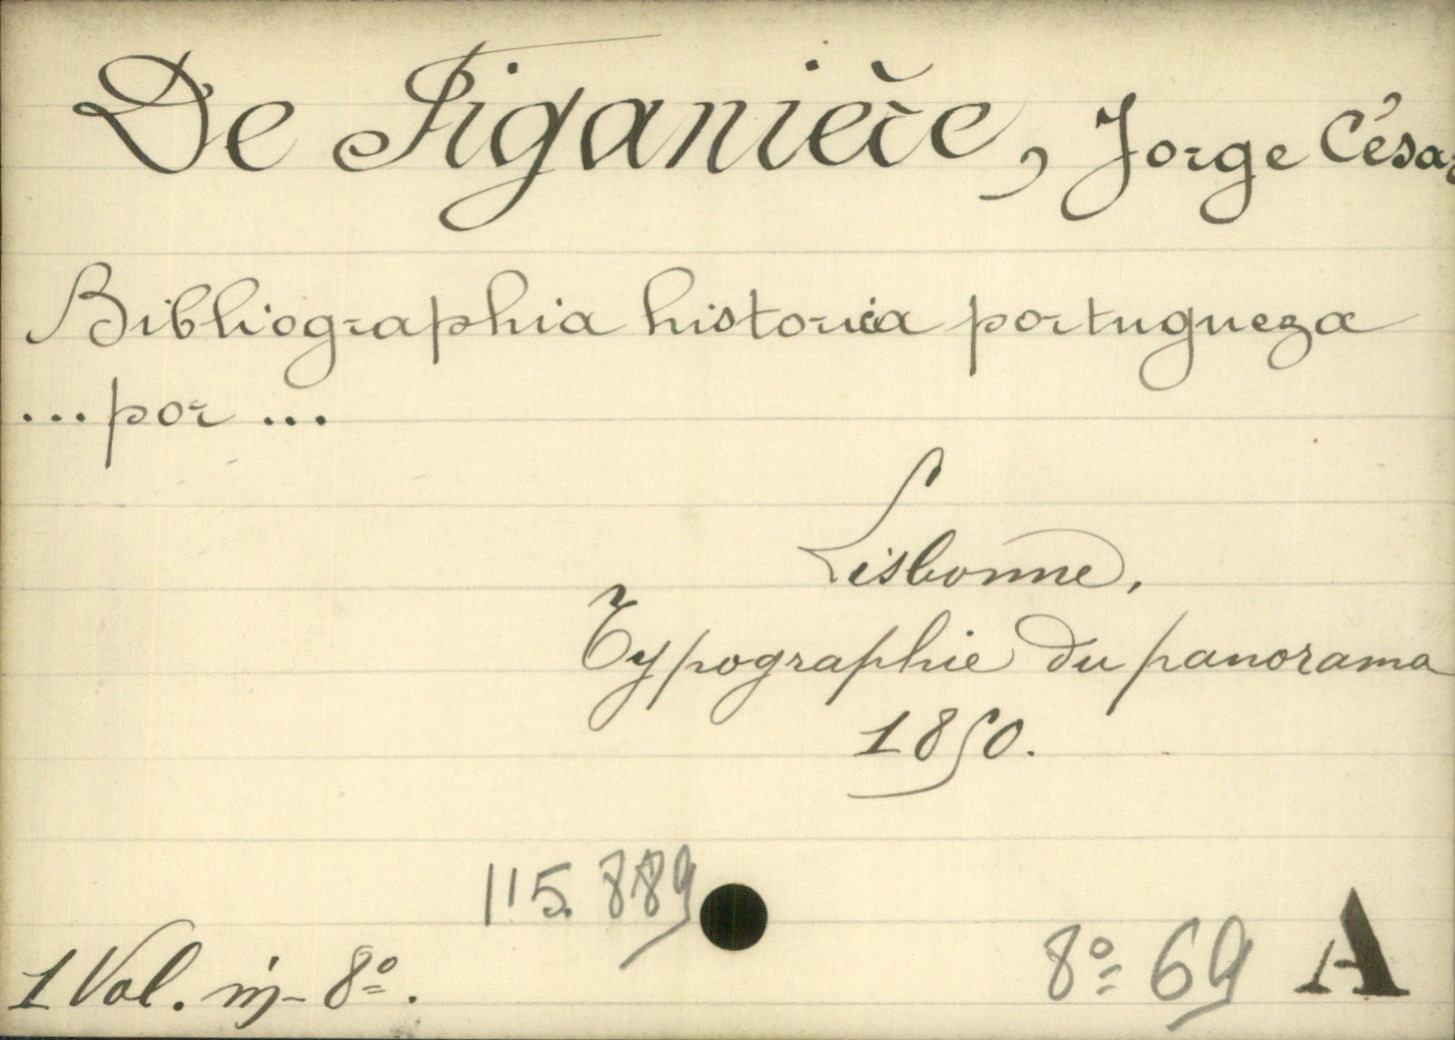 De Figanière, Jorge César
Bibliographia historica portugueza
... por ...
Lisbonne,
Typographie du panorama
1850.
115.889
1 Vol. in-8º.
8º 69 A